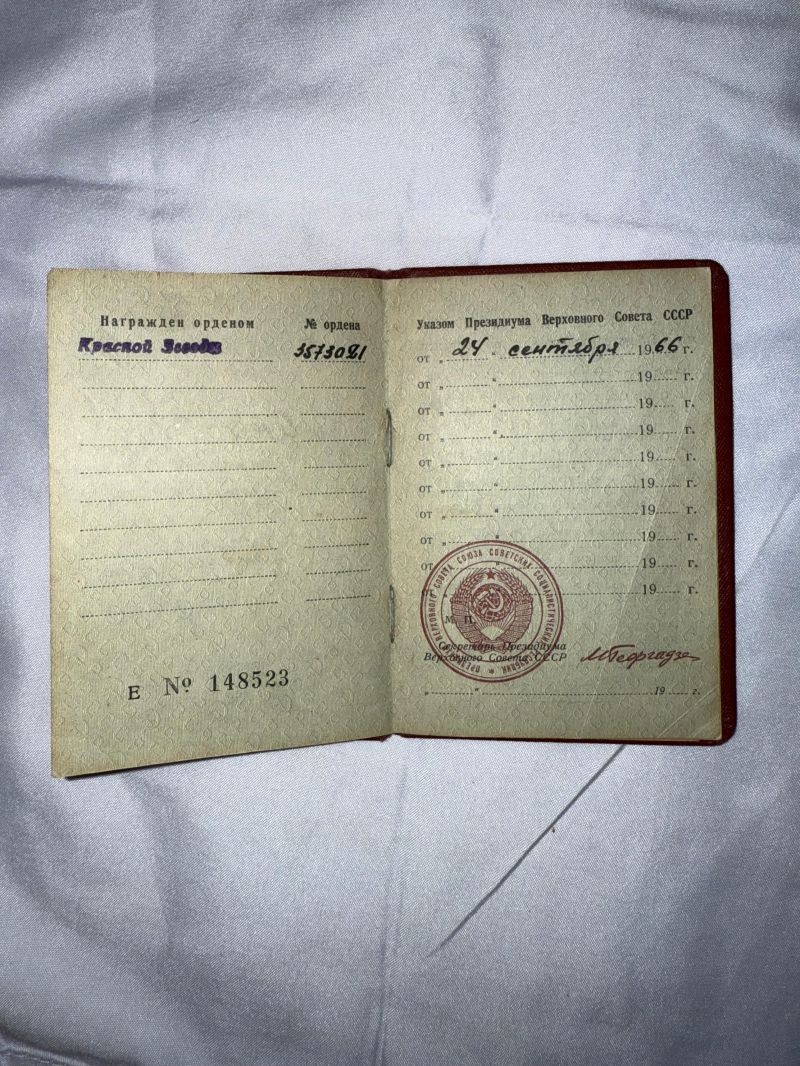 Награжден орденом № ордена
Красной Звезды 3573021
Е № 148523
Указом Президиума Верховного Совета СССР
от „ 24 “ сентября 1966 г.
от „ “ 19 г.
от „ “ 19 г.
от „ “ 19 г.
от „ “ 19 г.
от „ “ 19 г.
от „ “ 19 г.
от „ “ 19 г.
от „ “ 19 г.
от „ “ 19 г.
ПРЕЗИДИУМ ВЕРХОВНОГО СОВЕТА СОЮЗА СОВЕТСКИХ СОЦИАЛИСТИЧЕСКИХ РЕСПУБЛИК
М. П.
Секретарь Президиума
Верховного Совета СССР МГеоргадзе
„ “ 19 г.